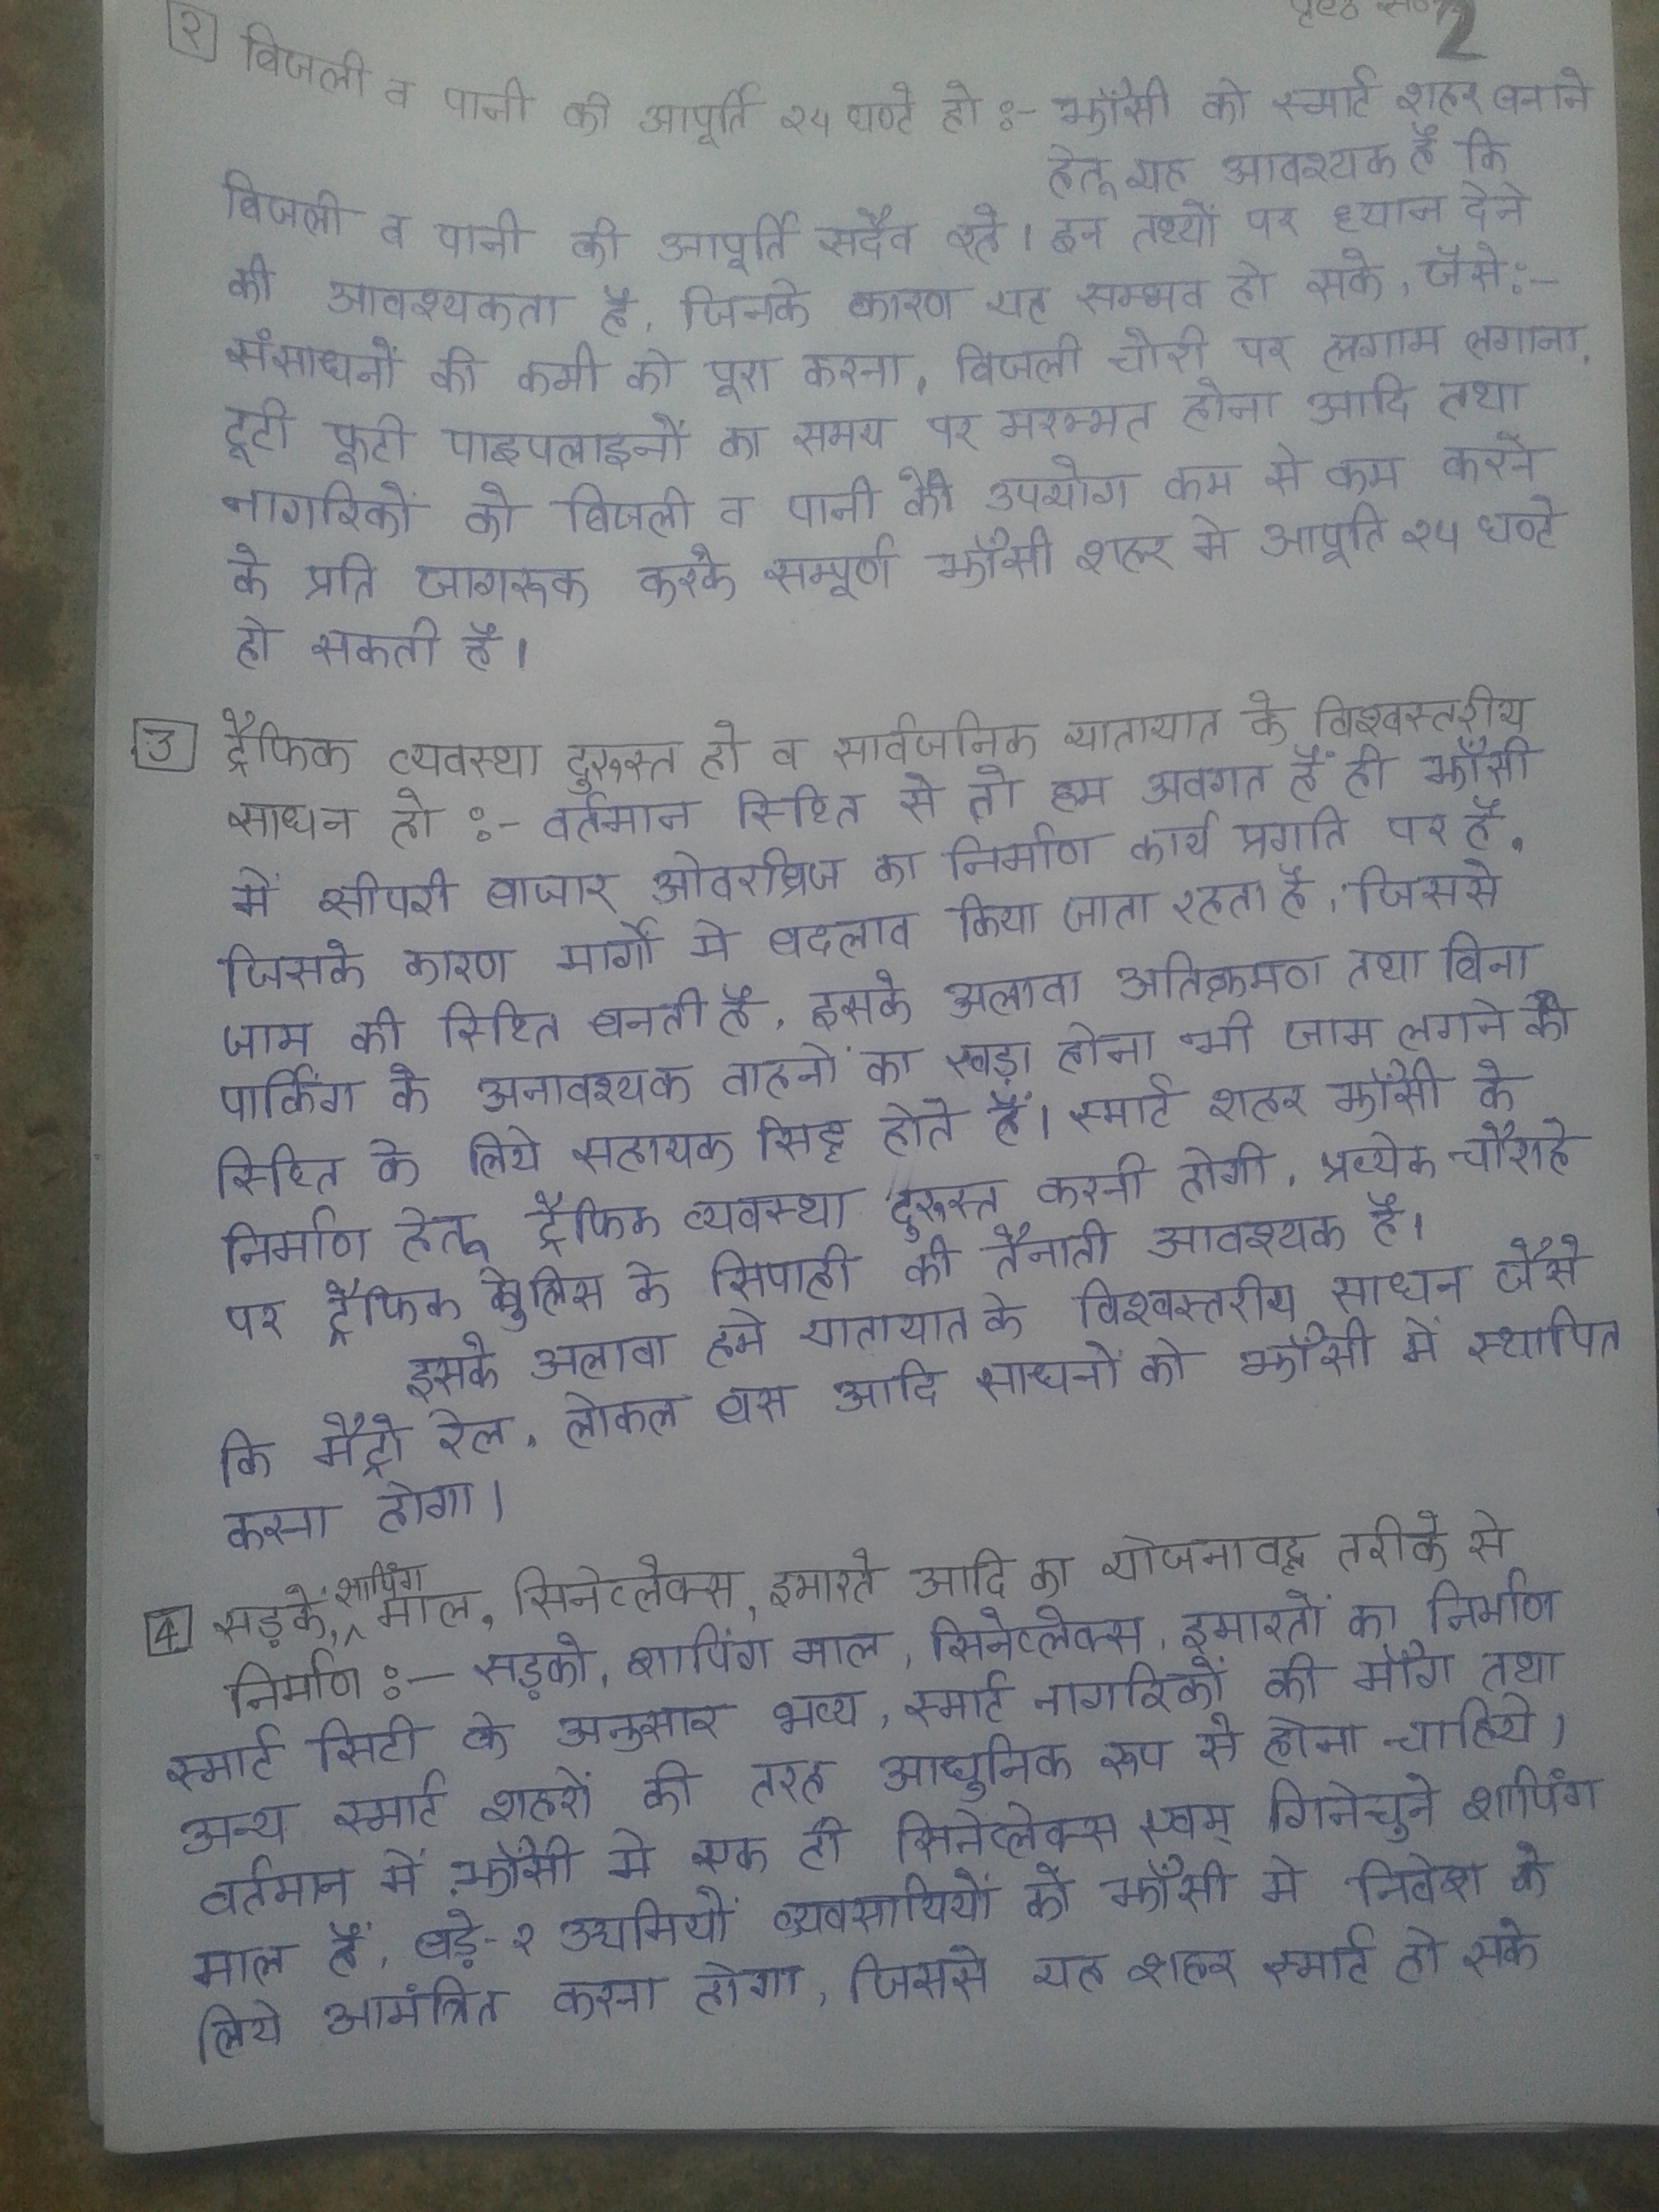 पृष्ठ सं० 2
२ बिजली व पानी की आपूर्ति २४ घण्टे हो :- झाँसी को स्मार्ट शहर बनाने
हेतू यह आवश्यक है कि
बिजली व पानी की आपूर्ति सदैव रहे। इन तथ्यों पर ध्यान देने
की आवश्यकता है, जिनके कारण यह सम्भव हो सके, जैसे:-
संसाधनों की कमी को पूरा करना, बिजली चोरी पर लगाम लगाना,
टूटी फूटी पाइपलाइनों का समय पर मरम्मत होना आदि तथा
नागरिकों को बिजली व पानी के उपयोग कम से कम करने
के प्रति जागरूक करके सम्पूर्ण झाँसी शहर मे आपूति २४ घण्टे
हो सकती है।
3 ट्रैफिक व्यवस्था दुरूस्त हो व सार्वजनिक यातायात के विश्वस्तरीय
साधन हो :- वर्तमान स्थिति से तो हम अवगत हैं ही झाँसी
में सीपरी बाजार ओवरब्रिज का निर्माण कार्य प्रगति पर है,
जिसके कारण मार्गो मे बदलाव किया जाता रहता है, जिससे
जाम की स्थिति बनती है, इसके अलावा अतिक्रमण तथा बिना
पार्किंग के अनावश्यक वाहनों का खड़ा होना भी जाम लगने की
स्थिति के लिये सहायक सिद्ध होते हैं। स्मार्ट शहर झाँसी के
निर्माण हेतू ट्रैफिक व्यवस्था दुरूस्त करनी होगी, प्रत्येक चौराहे
पर ट्रैफिक पुलिस के सिपाही की तैनाती आवश्यक है।
इसके अलावा हमे यातायात के विश्वस्तरीय साधन जैसे
कि मैट्रो रेल, लोकल बस आदि साधनों को झाँसी में स्थापित
करना होगा।
4 सड़कें, शापिंग माल, सिनेप्लेक्स, इमारते आदि का योजनावद्ध तरीके से
निर्माण :- सड़को, शापिंग माल, सिनेप्लेक्स, इमारतों का निर्माण
स्मार्ट सिटी के अनुसार भव्य, स्मार्ट नागरिकों की माँग तथा
अन्य स्मार्ट शहरों की तरह आधुनिक रूप से होना चाहिये।
वर्तमान में झाँसी मे एक ही सिनेप्लेक्स एवम् गिनेचुने शापिंग
माल हैं, बड़े-२ उद्यमियों व्यवसायियों को झाँसी मे निवेश के
लिये आमंत्रित करना होगा, जिससे यह शहर स्मार्ट हो सके